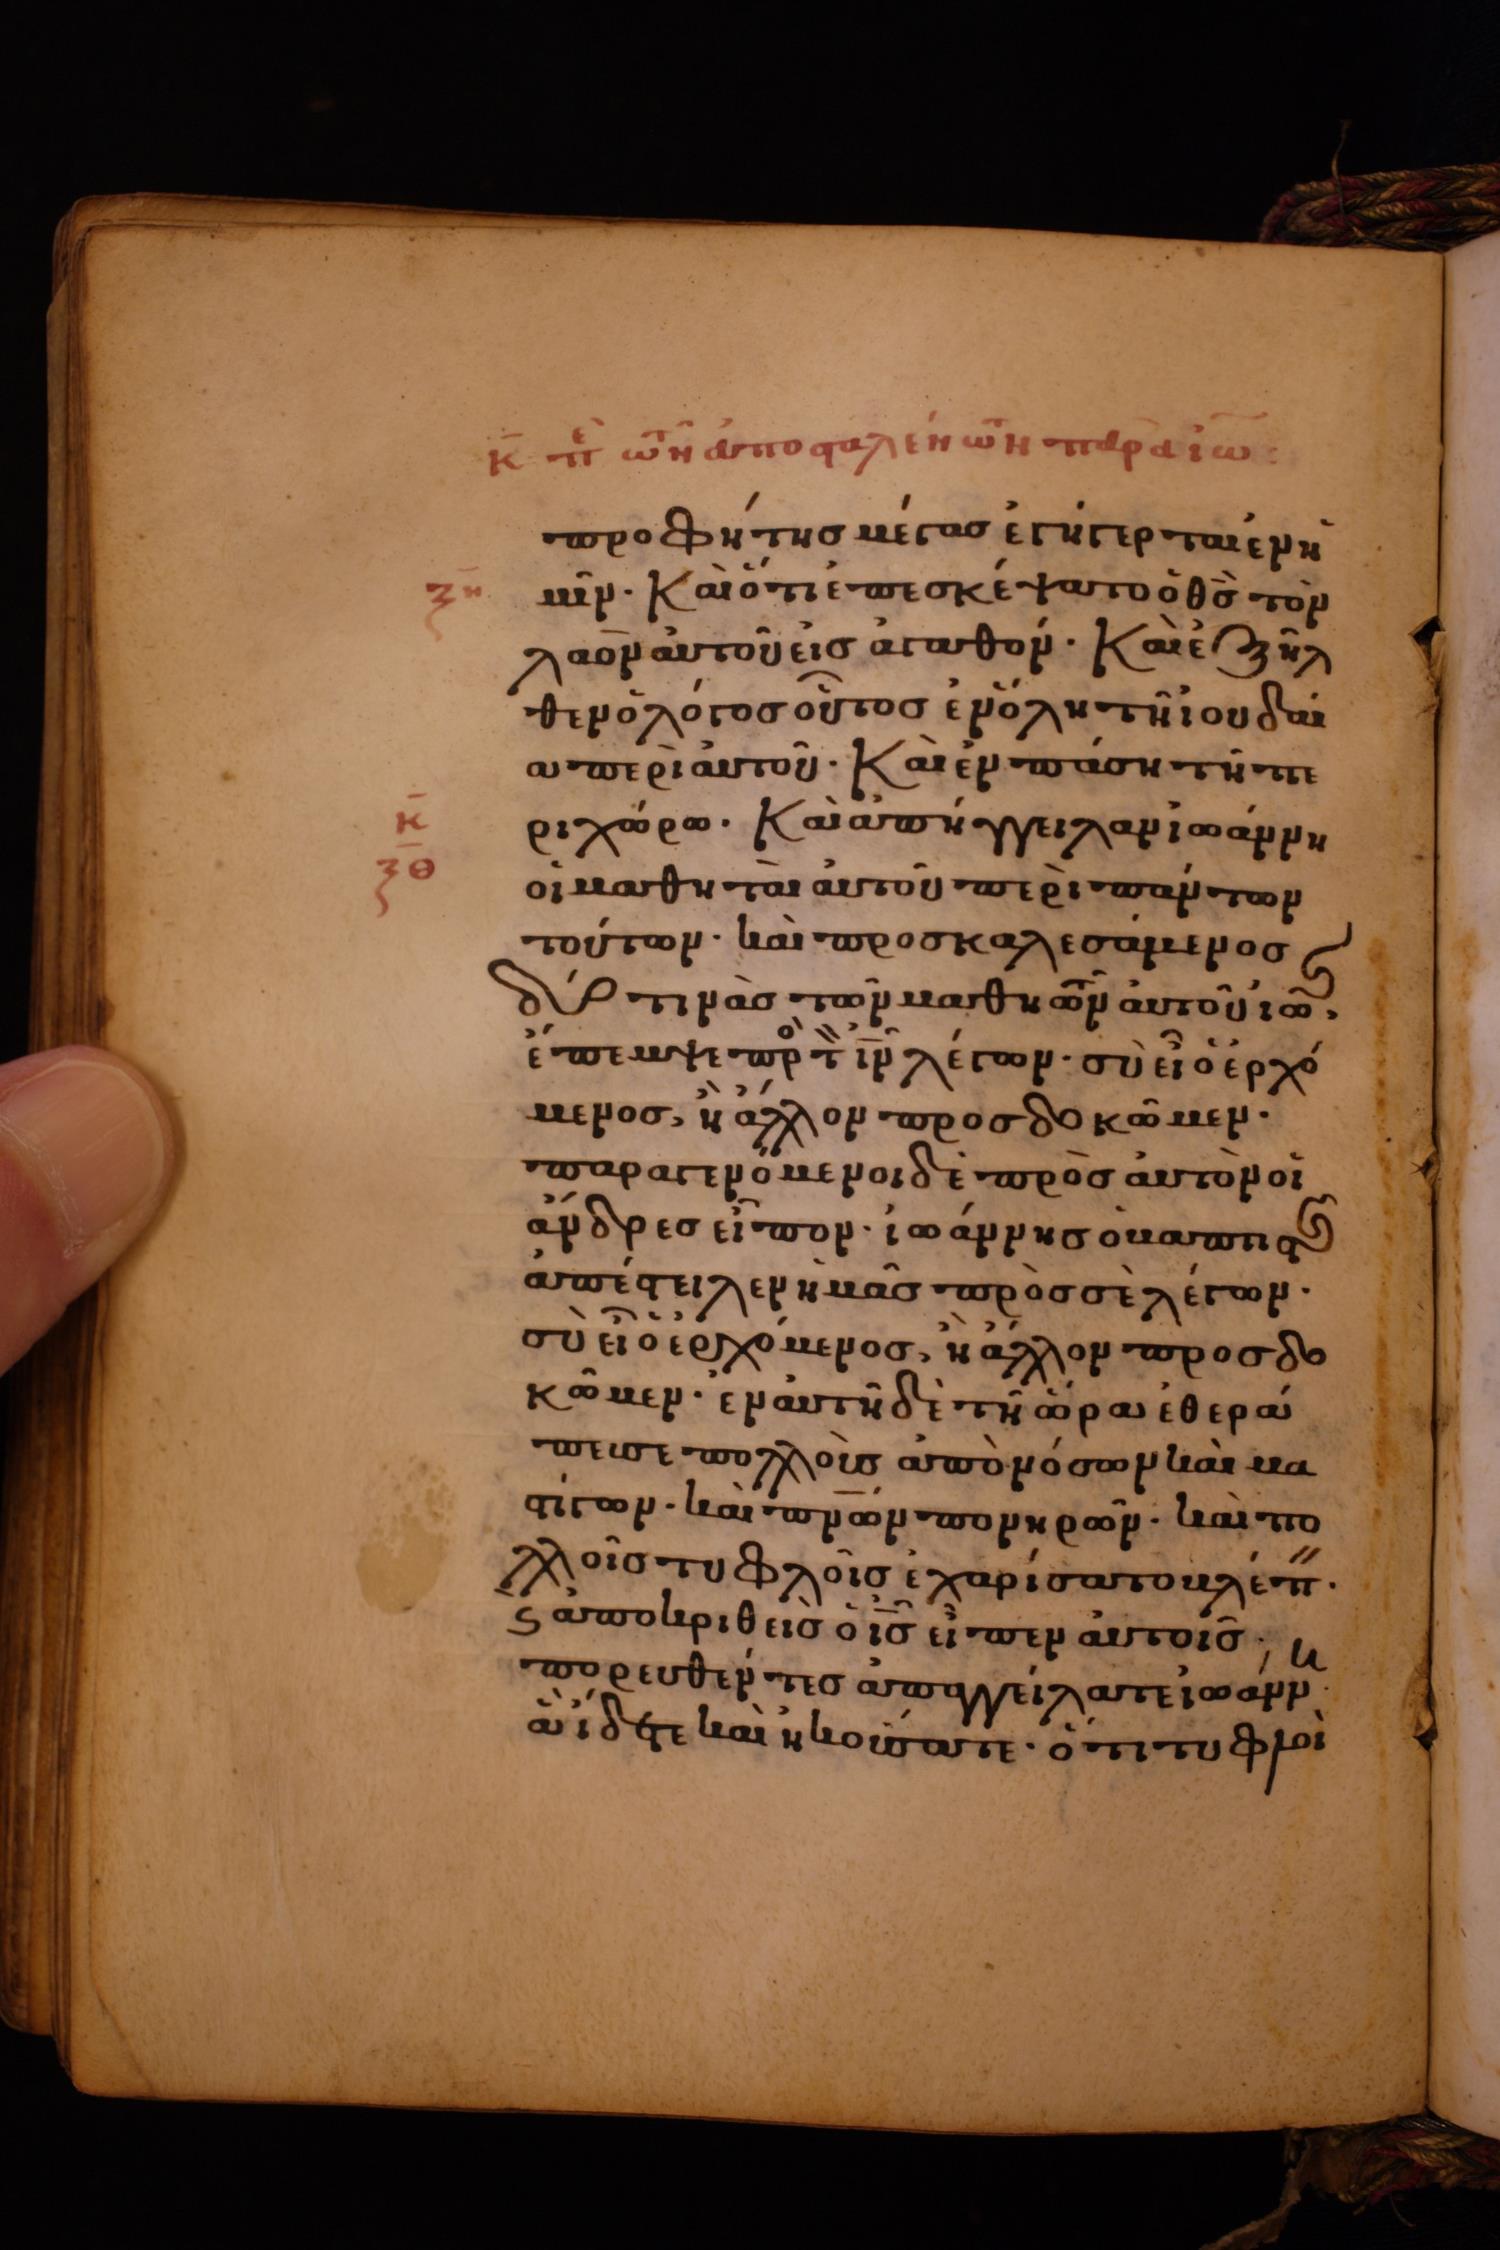 κ̄ π̑ε τῶν ἀποσταλέντων παρὰ ἰω:
προφήτης μέγας ἐγήγερται ἐν ἡ
μῖν· Καὶ ὅτι ἐπεσκέψατο ὁ θ̄ς̄ τὸν
ξη
λαὸν αὐτοῦ εἰς ἀγαθόν· Καὶ ἐξῆλ
θεν ὁ λόγος οὗτος ἐν ὅλη τῆ ἰουδαί
α περὶ αὐτοῦ· Καὶ ἐν πάση τῆ πε
κ̄
ριχώρω· Καὶ ἀπήγγειλαν ἰωάννη
ξθ
οἱ μαθηταὶ αὐτοῦ περὶ πάντων
τούτων· καὶ προσκαλεσάμενος
δύο τινὰς τῶν μαθητῶν αὐτοῦ ὁ ἰω̄,
ἔπεμψε πρὸς τ̏ ἰ̄ν̄ λέγων· σὺ εἶ ὁ ἐρχό
μενος, ἢ ἄλλον προσδοκῶμεν·
παραγενόμενοι δὲ πρὸς αὐτὸν οἱ
ἄνδρες εἶπον· ἰωάννης ὁ βαπτιστ
ἀπέστειλεν ἡμᾶς πρὸς σὲ λέγων·
σὺ εἶ ὁ ἐρχόμενος, ἢ ἄλλον προσδο
κῶμεν· ἐν αὐτῆ δὲ τῆ ὥρα ἐθερά
πευσε πολλοὺς ἀπὸ νόσων καὶ μα
στίγων· καὶ π̄ν̄ων πονηρῶν· καὶ πο
λλοῖς τυφλοῖς ἐχαρίσατο βλέπ̏·
ϛ ἀποκριθεὶς ὁ ἰ̄ς̄ εἶπεν αὐτοῖς·
πορευθέντες ἀπαγγείλατε ἰωάννη
ἃ ἴδετε καὶ ἠκούσατε· ὅτι τυφλοὶ